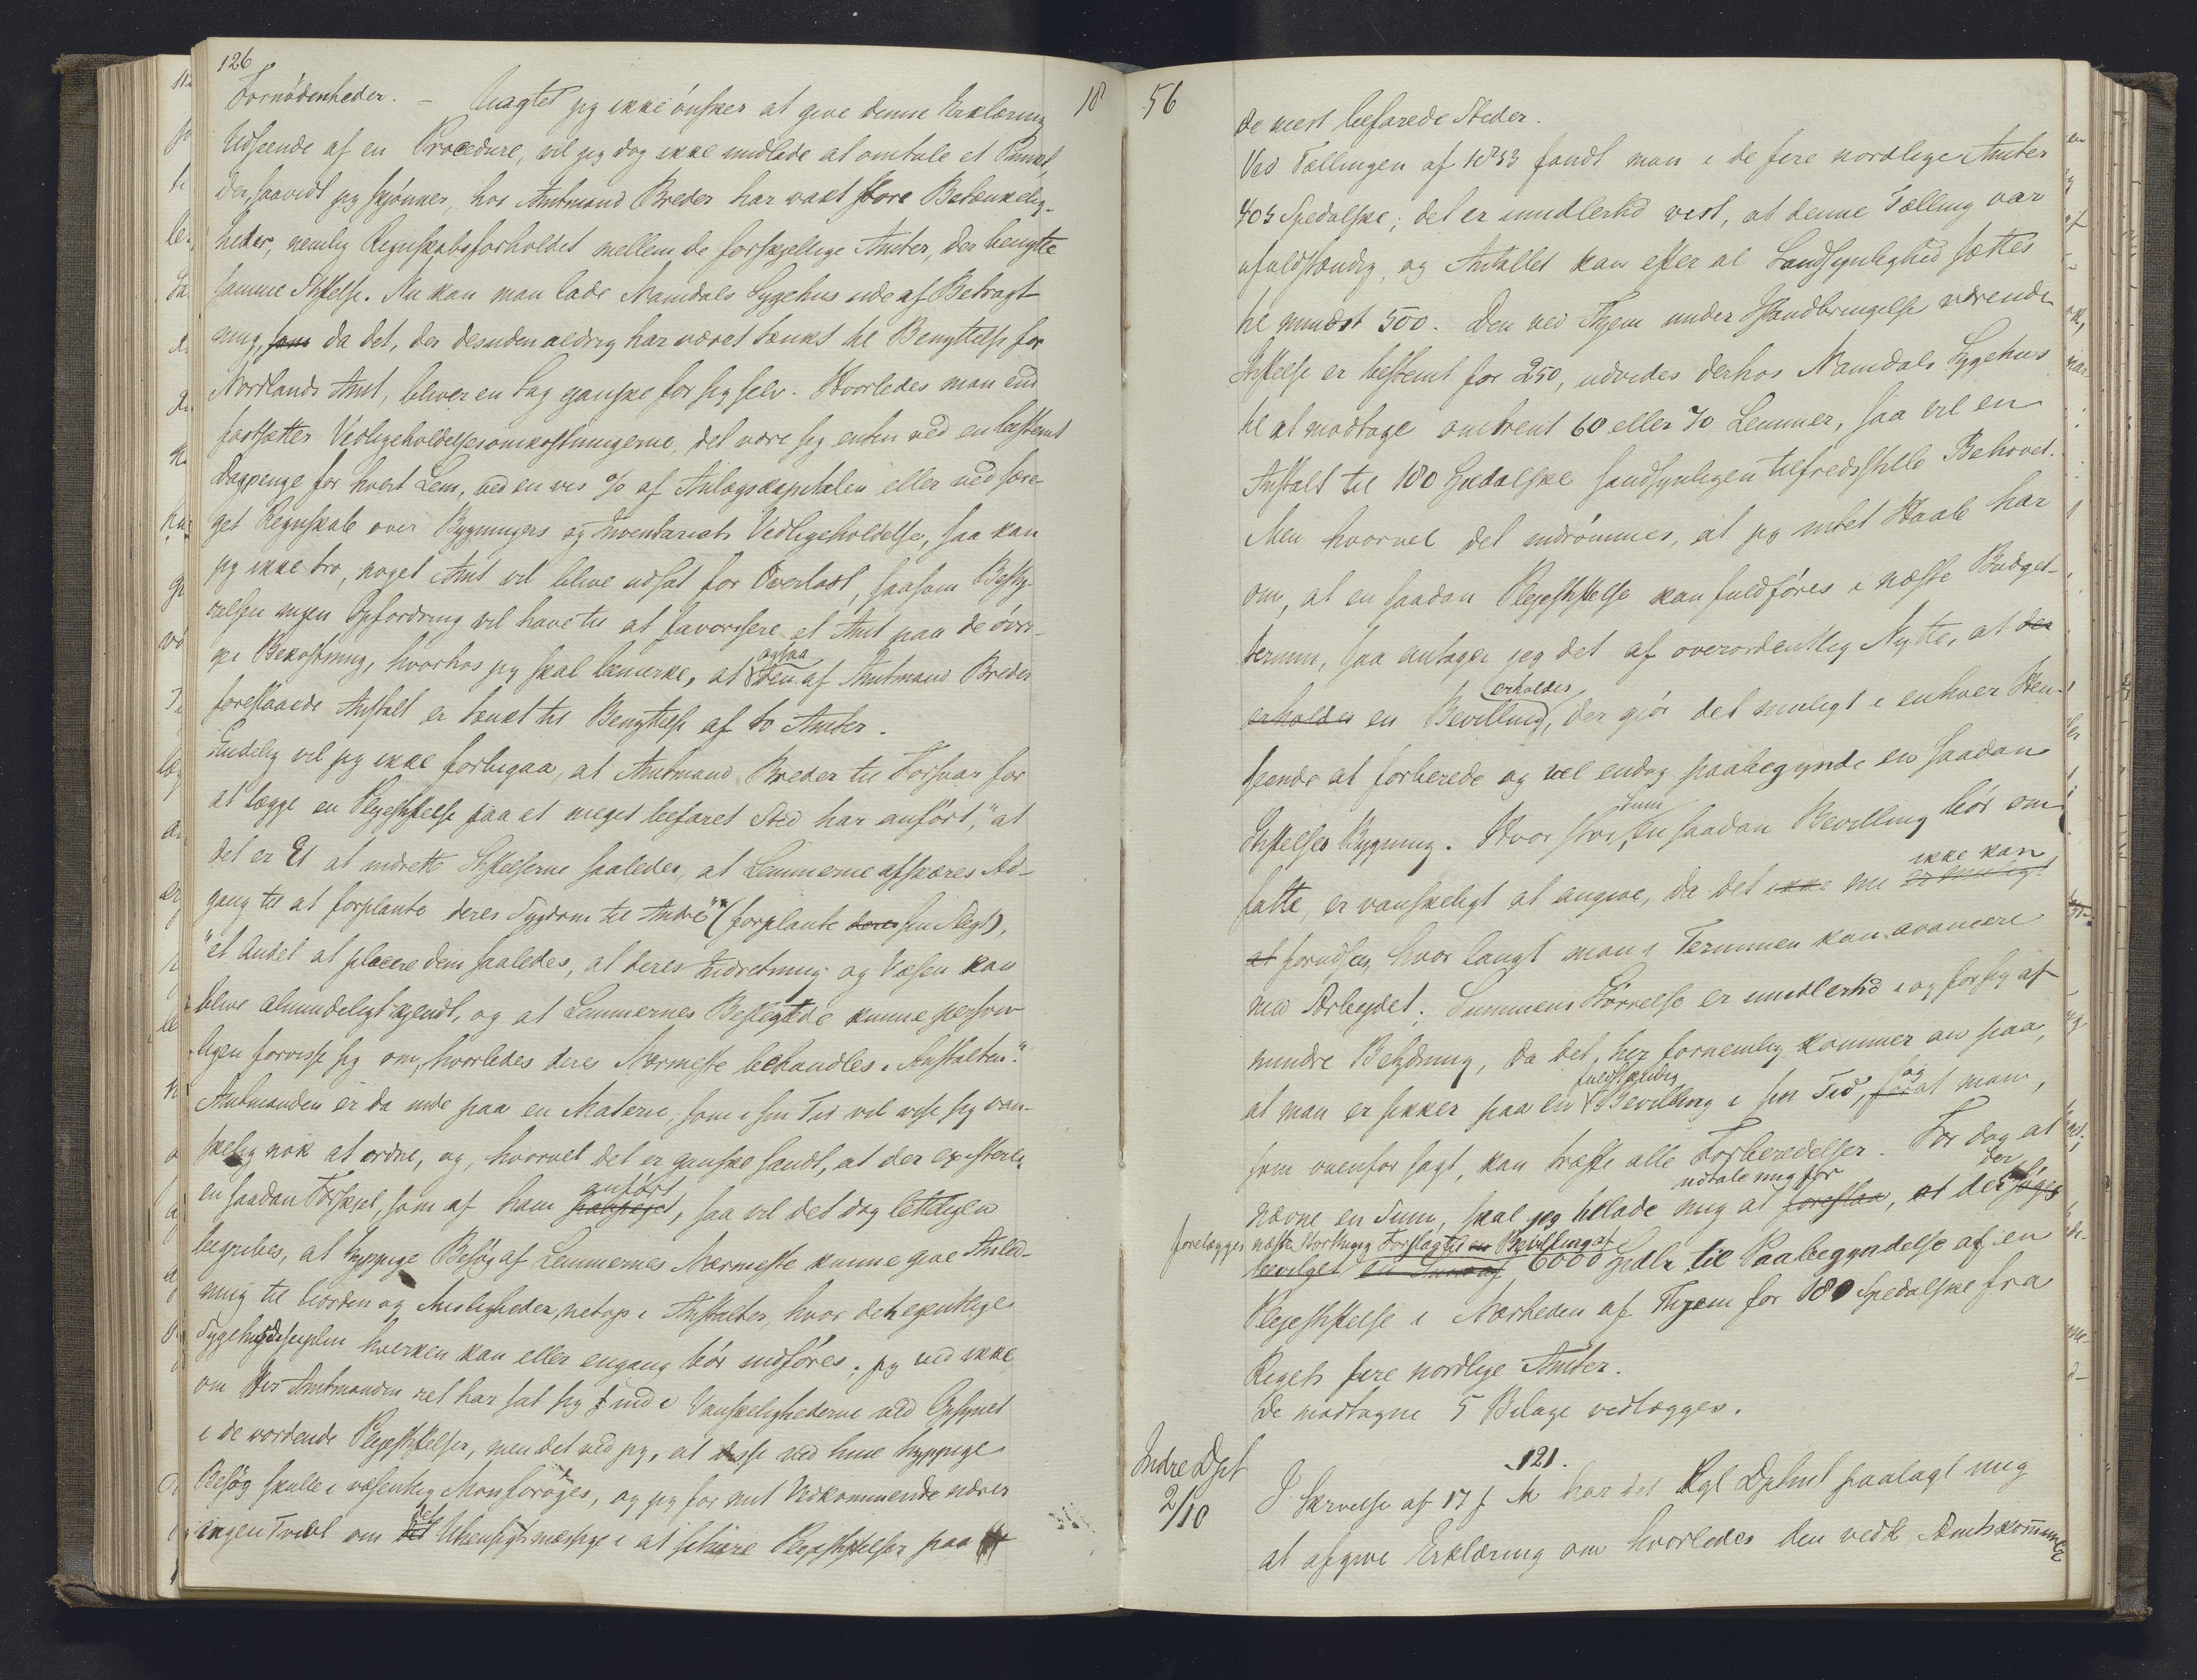 126
Fornødenheder. – Uagtet jeg ikke ønsker at give denne Erklæring
Udseende af en Procedure, vil jeg dog ikke undlade at omtale et Punct,
der, saavidt jeg skjønner, hos Amtmand Breder har vakt store Betænkelig-
heder, nemlig Regnskabsforholdet mellem de forskjellige Amter, der benytte
samme Stiftelse. Nu kan man lade Namdals Sygehus ude af Betragt-
ning, som da det, der desuden aldrig har været tænkt til Benyttelse for
Nordlands Amt, bliver en Sag ganske for sig selv. Hvorledes man end
fastsætter Vedligeholdelsesomkostningerne, det være sig enten ved en bestemt
Dagpenge for hvert Lem, ved en vis % af Anlægskapitalen eller ved sære-
get Regnskab over Bygningers og Inventariets Vedligeholdelse, saa kan
jeg ikke tro, noget Amt vil blive udsat for Overlast, saasom Besty-
relsen ingen Opfordring vil have til at favorisere et Amt paa de øvri-
ges Bekostning, hvorhos jeg skal bemærke, at ogsaa den af Amtmand Breder
foreslaaede Anstalt er tænkt til Benyttelse af to Amter.
Endelig vil jeg ikke forbigaa, at Amtmand Breder til Forsvar for
at lægge en Plejestiftelse paa et meget befaret Sted har anført, "at
det er Et at indrette Stiftelserne saaledes, at Lemmerne afskæres Ad-
gang til at forplante deres Sygdom til Andre" (forplante deres sin Slægt),
"et Andet at placere dem saaledes, at deres Indretning og Væsen kan
blive almindeligt kjendt, og at Lemmernes Beslægtede kunne person-
ligen forvisse sig om, hvorledes deres Nærmeste behandles i Anstalten."
Amtmanden er da inde paa en Materie, som i sin Tid vil vise sig van-
skelig nok at ordne, og, hvorvel det er ganske sandt, at der existerer
en saadan Forskjel, som af ham anført, saa vil det dog lettelig
begribes, at hyppige Besøg af Lemmernes Nærmeste kunne give Anled-
ning til Uorden og Misligheder, netop i Anstalter, hvor den egentlige
Sygehusdisciplin hverken kan eller engang bør indføres; jeg ved ikke
om Hr Amtmanden ret har sat sig ind i Vanskelighederne ved Opsynet
i de vordende Plejestiftelser, men det ved jeg, at disse ved hine hyppige
Besøg skulle i væsentlig Mon forøges, og jeg for mit Vedkommende nærer
ingen Tvivl om det Uhensigtsmæssige i at placere Plejestiftelser paa
18 56
de mest befarede Steder.
Ved Tællingen af 1853 fandt man i de fire nordlige Amter
403 Spedalske; det er imidlertid vist, at denne Tælling var
ufuldstændig, og Antallet kan efter al Sandsynlighed sættes
til mindst 500. Den ved Thjem under Istandbringelse værende
Stiftelse er bestemt for 250, udvides derhos Namdals Sygehus
til at modtage omtrent 60 eller 70 Lemmer, saa vil en
Anstalt til 180 Spedalske sandsynligen tilfredsstille Behovet.
Men hvorvel det indrømmes, at jeg intet Haab har
om, at en saadan Plejestiftelse kan fuldføres i næste Budget-
termin, saa antager jeg det af overordentlig Nytte, at der
erholdes
erholdes en Bevilling, der gjør det muligt i enhver Hen-
seende at forberede og vel endog paabegynde en saadan
Stiftelses Bygning. Hvor stor Sum en saadan Bevilling bør om-
fatte, er vanskeligt at angive, da det ikke nu er muligt ikke kan
at forudsees, hvor langt man i Terminen kan avancere
med Arbejdet. Summens Størrelse er imidlertid i og for sig af
mindre Betydning, da det her fornemlig kommer an paa,
at man er sikker paa en fuldstændig Bevilling i sin Tid, og at man,
som ovenfor sagt, kan træffe alle Forberedelser. For dog at
nævne en Sum, skal jeg tillade mig at foreslaa udtale mig for, at der bør
forelægges næste Storthing Forslag til en Bevilling af
bevilget en Sum af 6000 Spdlr til Paabegyndelse af en
Plejestiftelse i Nærheden af Thjem for 180 Spedalske fra
Rigets fire nordlige Amter.
De modtagne 5 Bilage vedlægges.
121.
Indre Dpt
2/10
I Skrivelse af 17 f M har det Kgl Dptmt paalagt mig
at afgive Erklæring om hvorledes den vedk Amtskommune